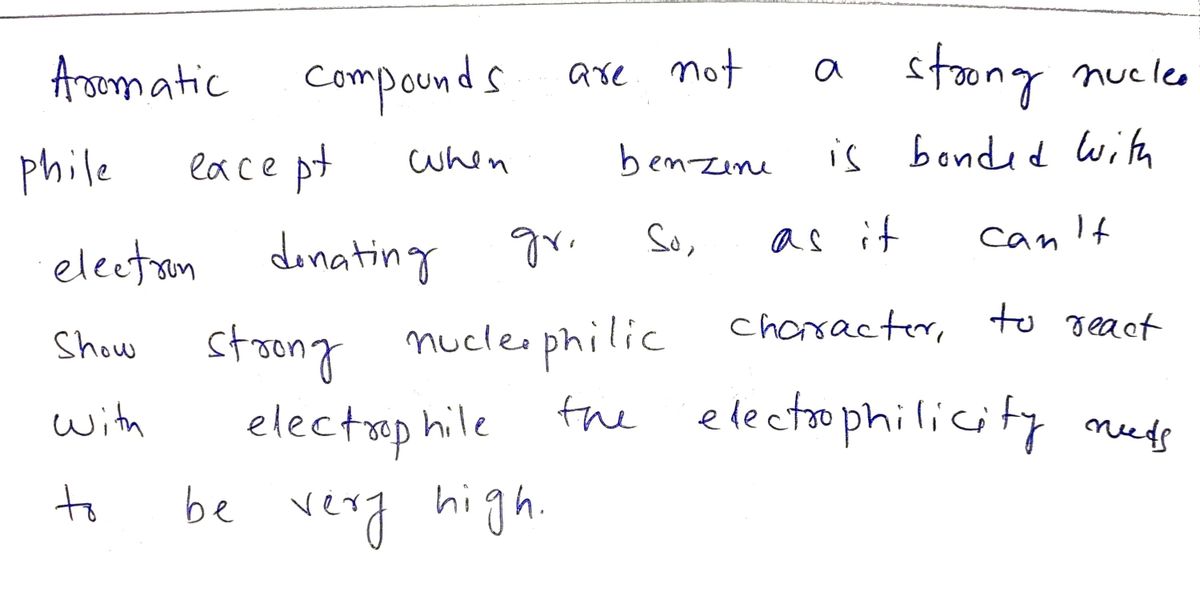 Aromatic compounds are not a strong nucleo
phile except when benzene is bonded with
electron donating gr. So, as it can't
show strong nucleophilic character, to react
with electrophile the electrophilicity needs
to be very high.